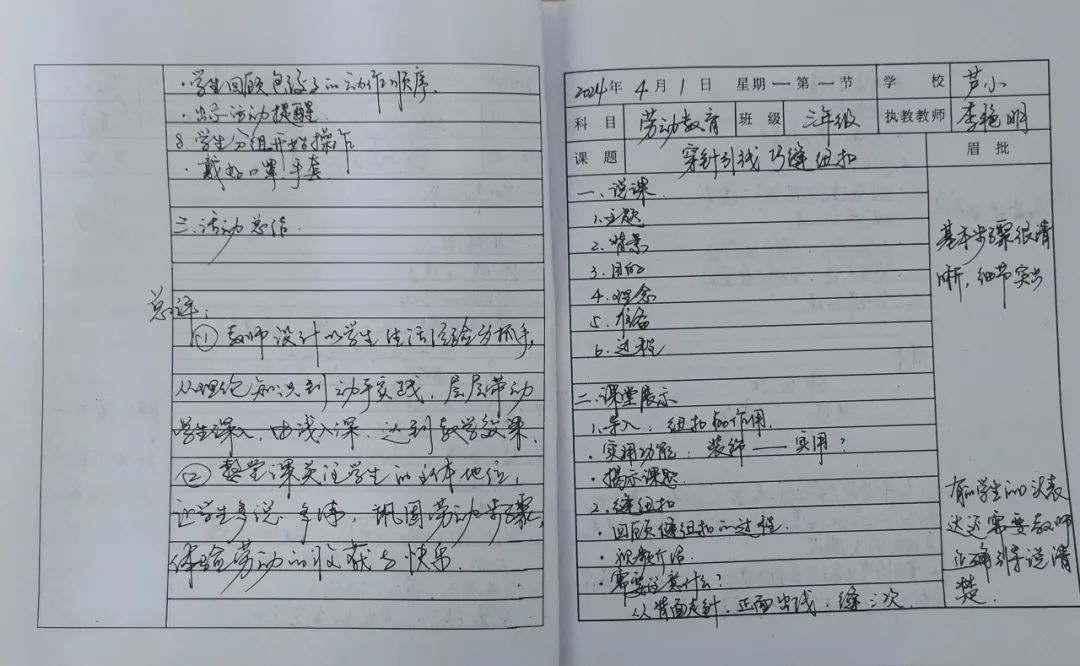 ·学生回顾包饺子的动作顺序.
·出示活动提醒.
8.学生分组开始操作
·戴好口罩手套
三.活动总结.
总评:
①教师设计以学生生活经验为抓手,
从理论知识到动手实践,层层带动
学生深入.由浅入深.达到教学效果.
②整堂课关注学生的主体地位,
让学生多说多练,巩固劳动步骤,
体验劳动的收获与快乐.
2024年 4月 1日 星期一第一节 学校 芦小
科目 劳动教育 班级 三年级 执教教师 李艳明
课题 穿针引线巧缝纽扣 眉批
一、说课.
1.主题
2.背景
3.目的
4.理念
5.准备
6.过程
二.课堂展示
1.导入:纽扣的作用.
·实用功能:装饰——实用?
·揭示课题.
2.缝纽扣
·回顾缝纽扣的过程.
·视频介绍.
·需要注意什么?
从背面走针.正面出线.缝三次.
基本步骤很清
晰,细节突出
有的学生的表
达还需要教师
正确引导说清
楚.